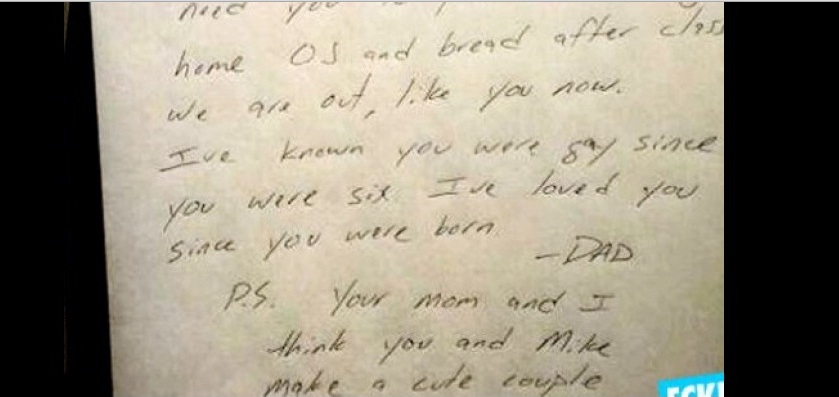 need you
home OJ and bread after class
We are out, like you now.
I've known you were gay since
you were six. I've loved you
since you were born.
-DAD
P.S. Your mom and I
think you and Mike
make a cute couple